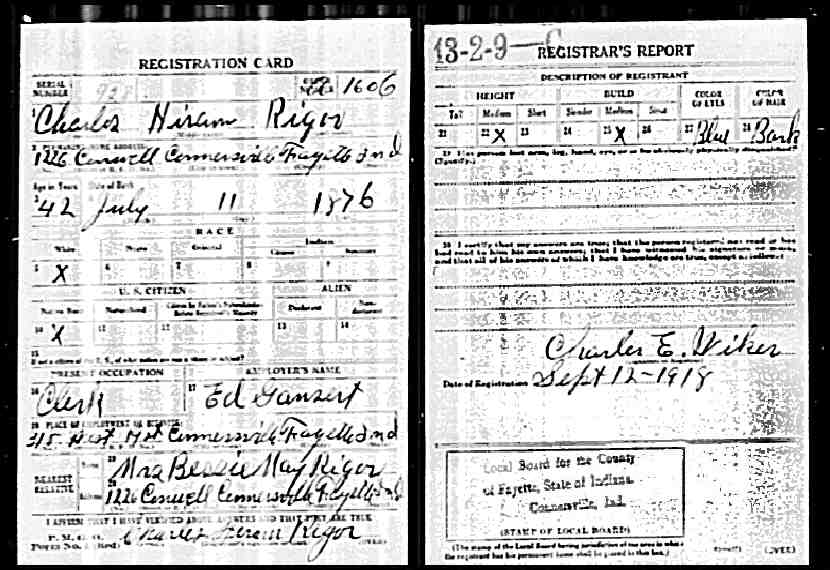 REGISTRATION CARD
SERIAL NUMBER 938 ORDER NUMBER 1606
Charles Hiram Rigor
PERMANENT HOME ADDRESS
1226 Conwell Connersville Fayette Ind
Age in Years Date of Birth
42 July 11 1876
RACE
White Negro Oriental Indian
Citizen
5 X 6 7 8 9
U. S. CITIZEN ALIEN
Native Born Naturalized Citizen by Father's Naturalization Before Registrant's Majority Declarant Non-declarant
10 X 11 12 13 14
15
If not a citizen of the U. S., of what nation are you a citizen or subject?
PRESENT OCCUPATION EMPLOYER'S NAME
16 Clerk 17 Ed Gansert
PLACE OF EMPLOYMENT OR BUSINESS
Connersville Fayette Ind
NEAREST RELATIVE
Name Mrs Bessie May Rigor
Address 1226 Conwell Connersville Fayette Ind
I AFFIRM THAT I HAVE VERIFIED ABOVE ANSWERS AND THAT THEY ARE TRUE
P. M. G. O.
Form No. 1 (Red) Charles Hiram Rigor (OVER)
13-2-9-C
REGISTRAR'S REPORT
DESCRIPTION OF REGISTRANT
HEIGHT BUILD COLOR OF EYES COLOR OF HAIR
Tall Medium Short Slender Medium Stout
21 22 X 23 24 25 X 26 27 Blue 28 Dark
29 Has person lost arm, leg, hand, eye, or is he obviously physically disqualified?
(Specify.)
30 I certify that my answers are true; that the person registered has read or has
had read to him his own answers; that I have witnessed his signature or mark,
and that all of his answers of which I have knowledge are true, except as follows:
Charles E. Wiker
Date of Registration Sept 12-1918
Local Board for the County
of Fayette, State of Indiana.
Connersville, Ind.
(STAMP OF LOCAL BOARD)
(The stamp of the Local Board having jurisdiction of the area in which
the registrant has his permanent home shall be placed in this box.)
(OVER)